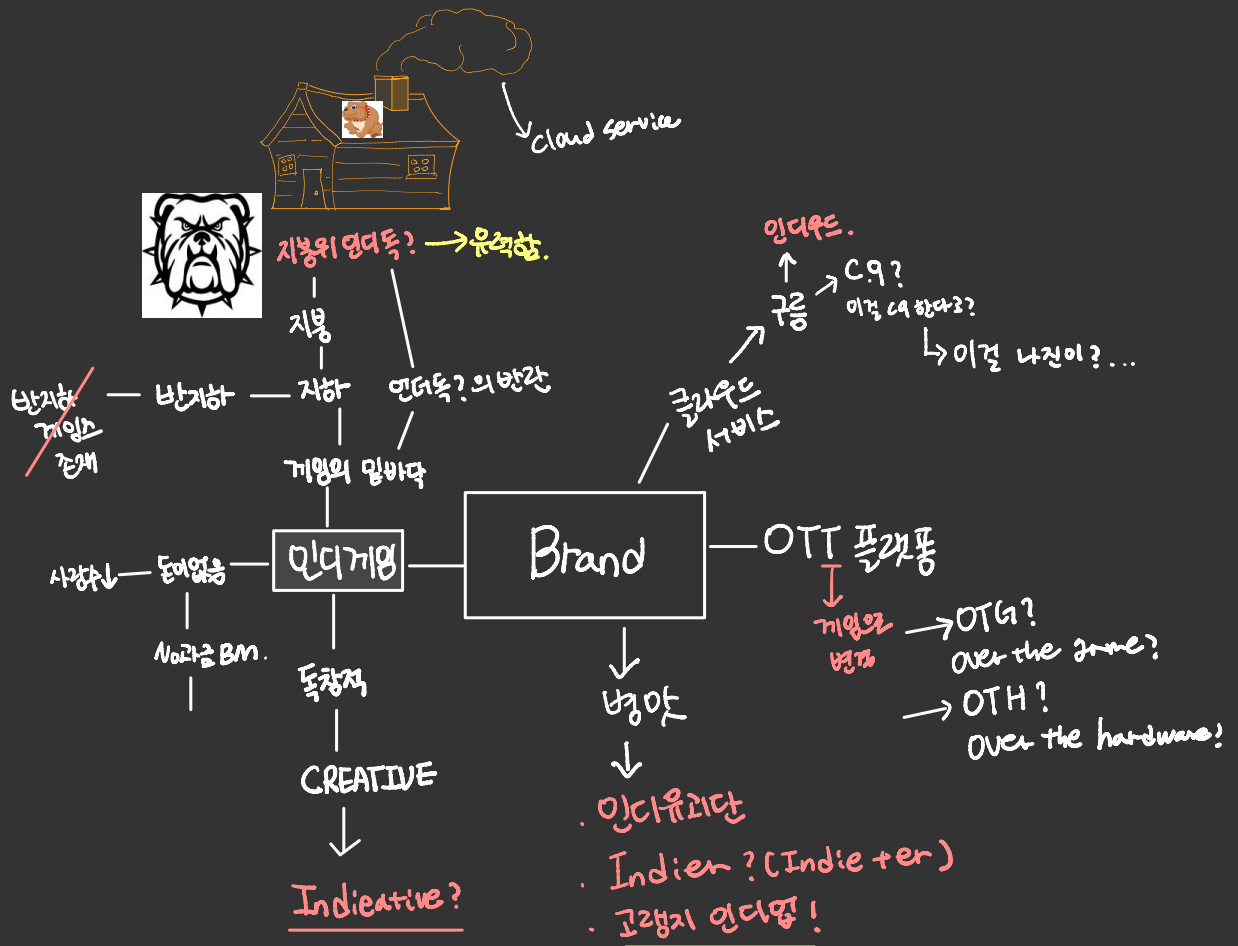 cloud service
지붕위 언더독?
유력함.
지붕
지하
반지하
반지하
게임즈
존재
언더독?의 반란
게임의 밑바닥
인디게임
돈이없음
사람수↓
No과금 BM.
독창적
CREATIVE
Indieative?
Brand
클라우드
서비스
구름
인디우드.
C.9?
이걸 C9 한다고?
이걸 나진이?...
OTT 플랫폼
게임으로
변경
OTG?
over the game?
OTH?
over the hardware?
병맛
. 인디유괴단
. Indier? (Indie+er)
. 고랭지 인디밭!